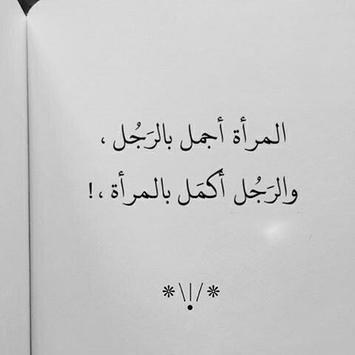 المرأة أجمل بالرَجُل ،
والرَجُل أكمَل بالمرأة ،!
*\!/*